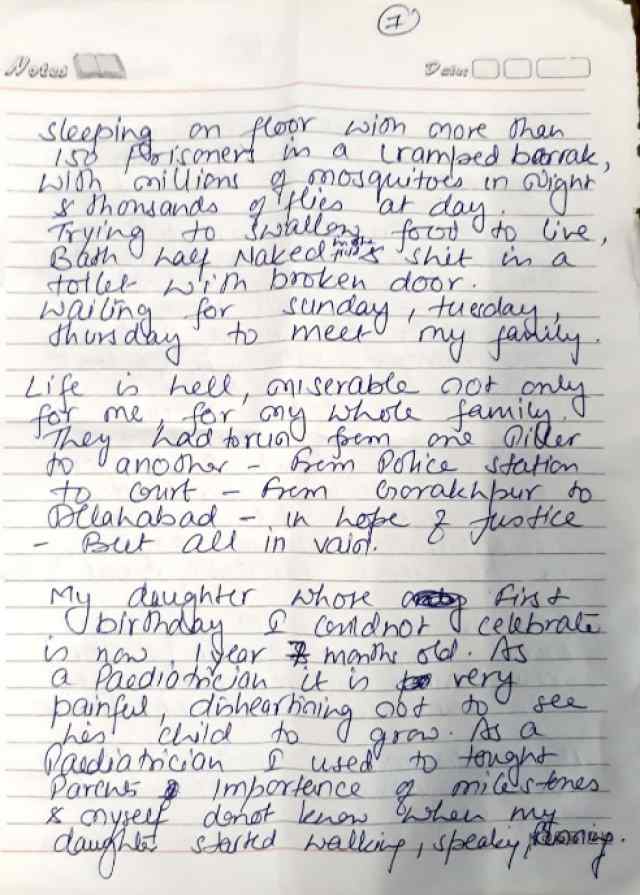 7
Notes
Date:
sleeping on floor with more than
150 Prisoners in a cramped barrak,
with millions of mosquitoes in Night
& thousands of flies at day.
Trying to swallow food to live,
Bath half Naked & shit in a
toilet with broken door.
waiting for sunday, tuesday,
thursday to meet my family.
Life is hell, miserable not only
for me, for my whole family.
They had to run from one Piller
to another - from Police station
to court - from Gorakhpur to
Allahabad - in hope of Justice
- But all in vain.
My daughter whose first
birthday I couldnot celebrate
is now 1 year 7 months old. As
a Paediatrician it is very
painful, disheartining not to see
his child to grow. As a
Paediatrician I used to tought
Parents importence of milestones
& myself donot know when my
daughter started walking, speaking, running.